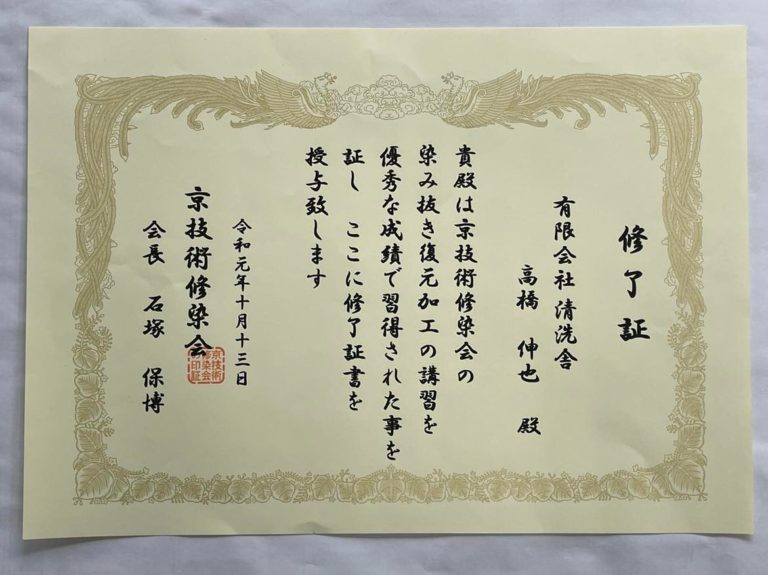 修了証
有限会社 清洗舎
高橋 伸也 殿
貴殿は京技術修染会の
染み抜き復元加工の講習を
優秀な成績で習得された事を
証し ここに修了証書を
授与致します
令和元年十月十三日
京技術修染会
会長 石塚 保博
京技術
修染会
之印証